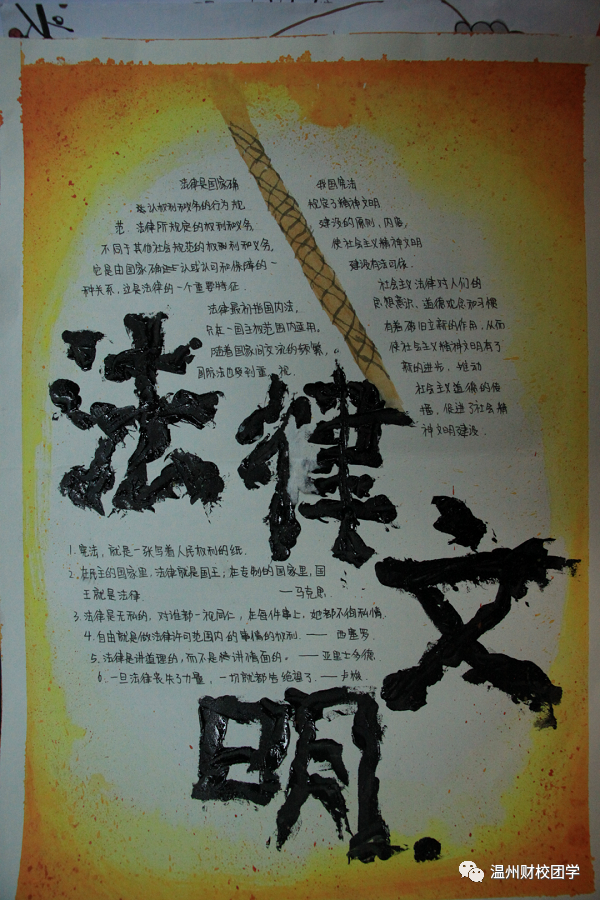 法律是国家确
认权利和义务的行为规
范．法律所规定的权利和义务
不同于其他社会规范的权利和义务，
它是由国家确认或认可和保障的一
种关系，这是法律的一个重要特征．
法律最初指国内法，
只在一国主权范围内适用。
随着国家间交流的频繁，
国际法也受到重视
我国宪法
规定了精神文明
建设的原则，内容，
使社会主义精神文明
建设有法可依．
社会主义法律对人们的
思想意识、道德观念和习惯
有着破旧立新的作用，从而
使社会主义精神文明有了
新的进步，推动
社会主义道德的传
播，促进了社会精
神文明建设．
法律
文
明
1．宪法，就是一张写着人民权利的纸．
2．在民主的国家里，法律就是国王；在专制的国家里，国
王就是法律 —马克思．
3．法律是无私的，对谁都一视同仁，在每件事上，她都不徇私情．
4．自由就是做法律许可范围内的事情的权利．—— 西塞罗．
5．法律是讲道理的，而不是讲情面的。——亚里士多德．
6．一旦法律丧失了力量，一切就都告绝望了．——卡
温州财校团学